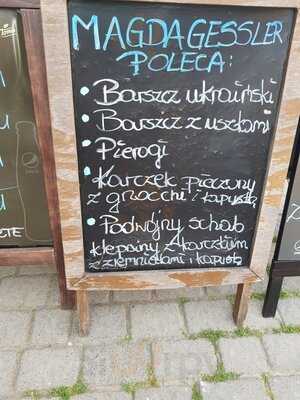 MAGDA GESSLER
POLECA:
• Barszcz ukraiński
• Barszcz z uszkami
• Pierogi
• Karczek pieczony
z gnocchi i kapustą
• Podwójny schab
klepany z kurczakiem
z ziemniakami i kapustą